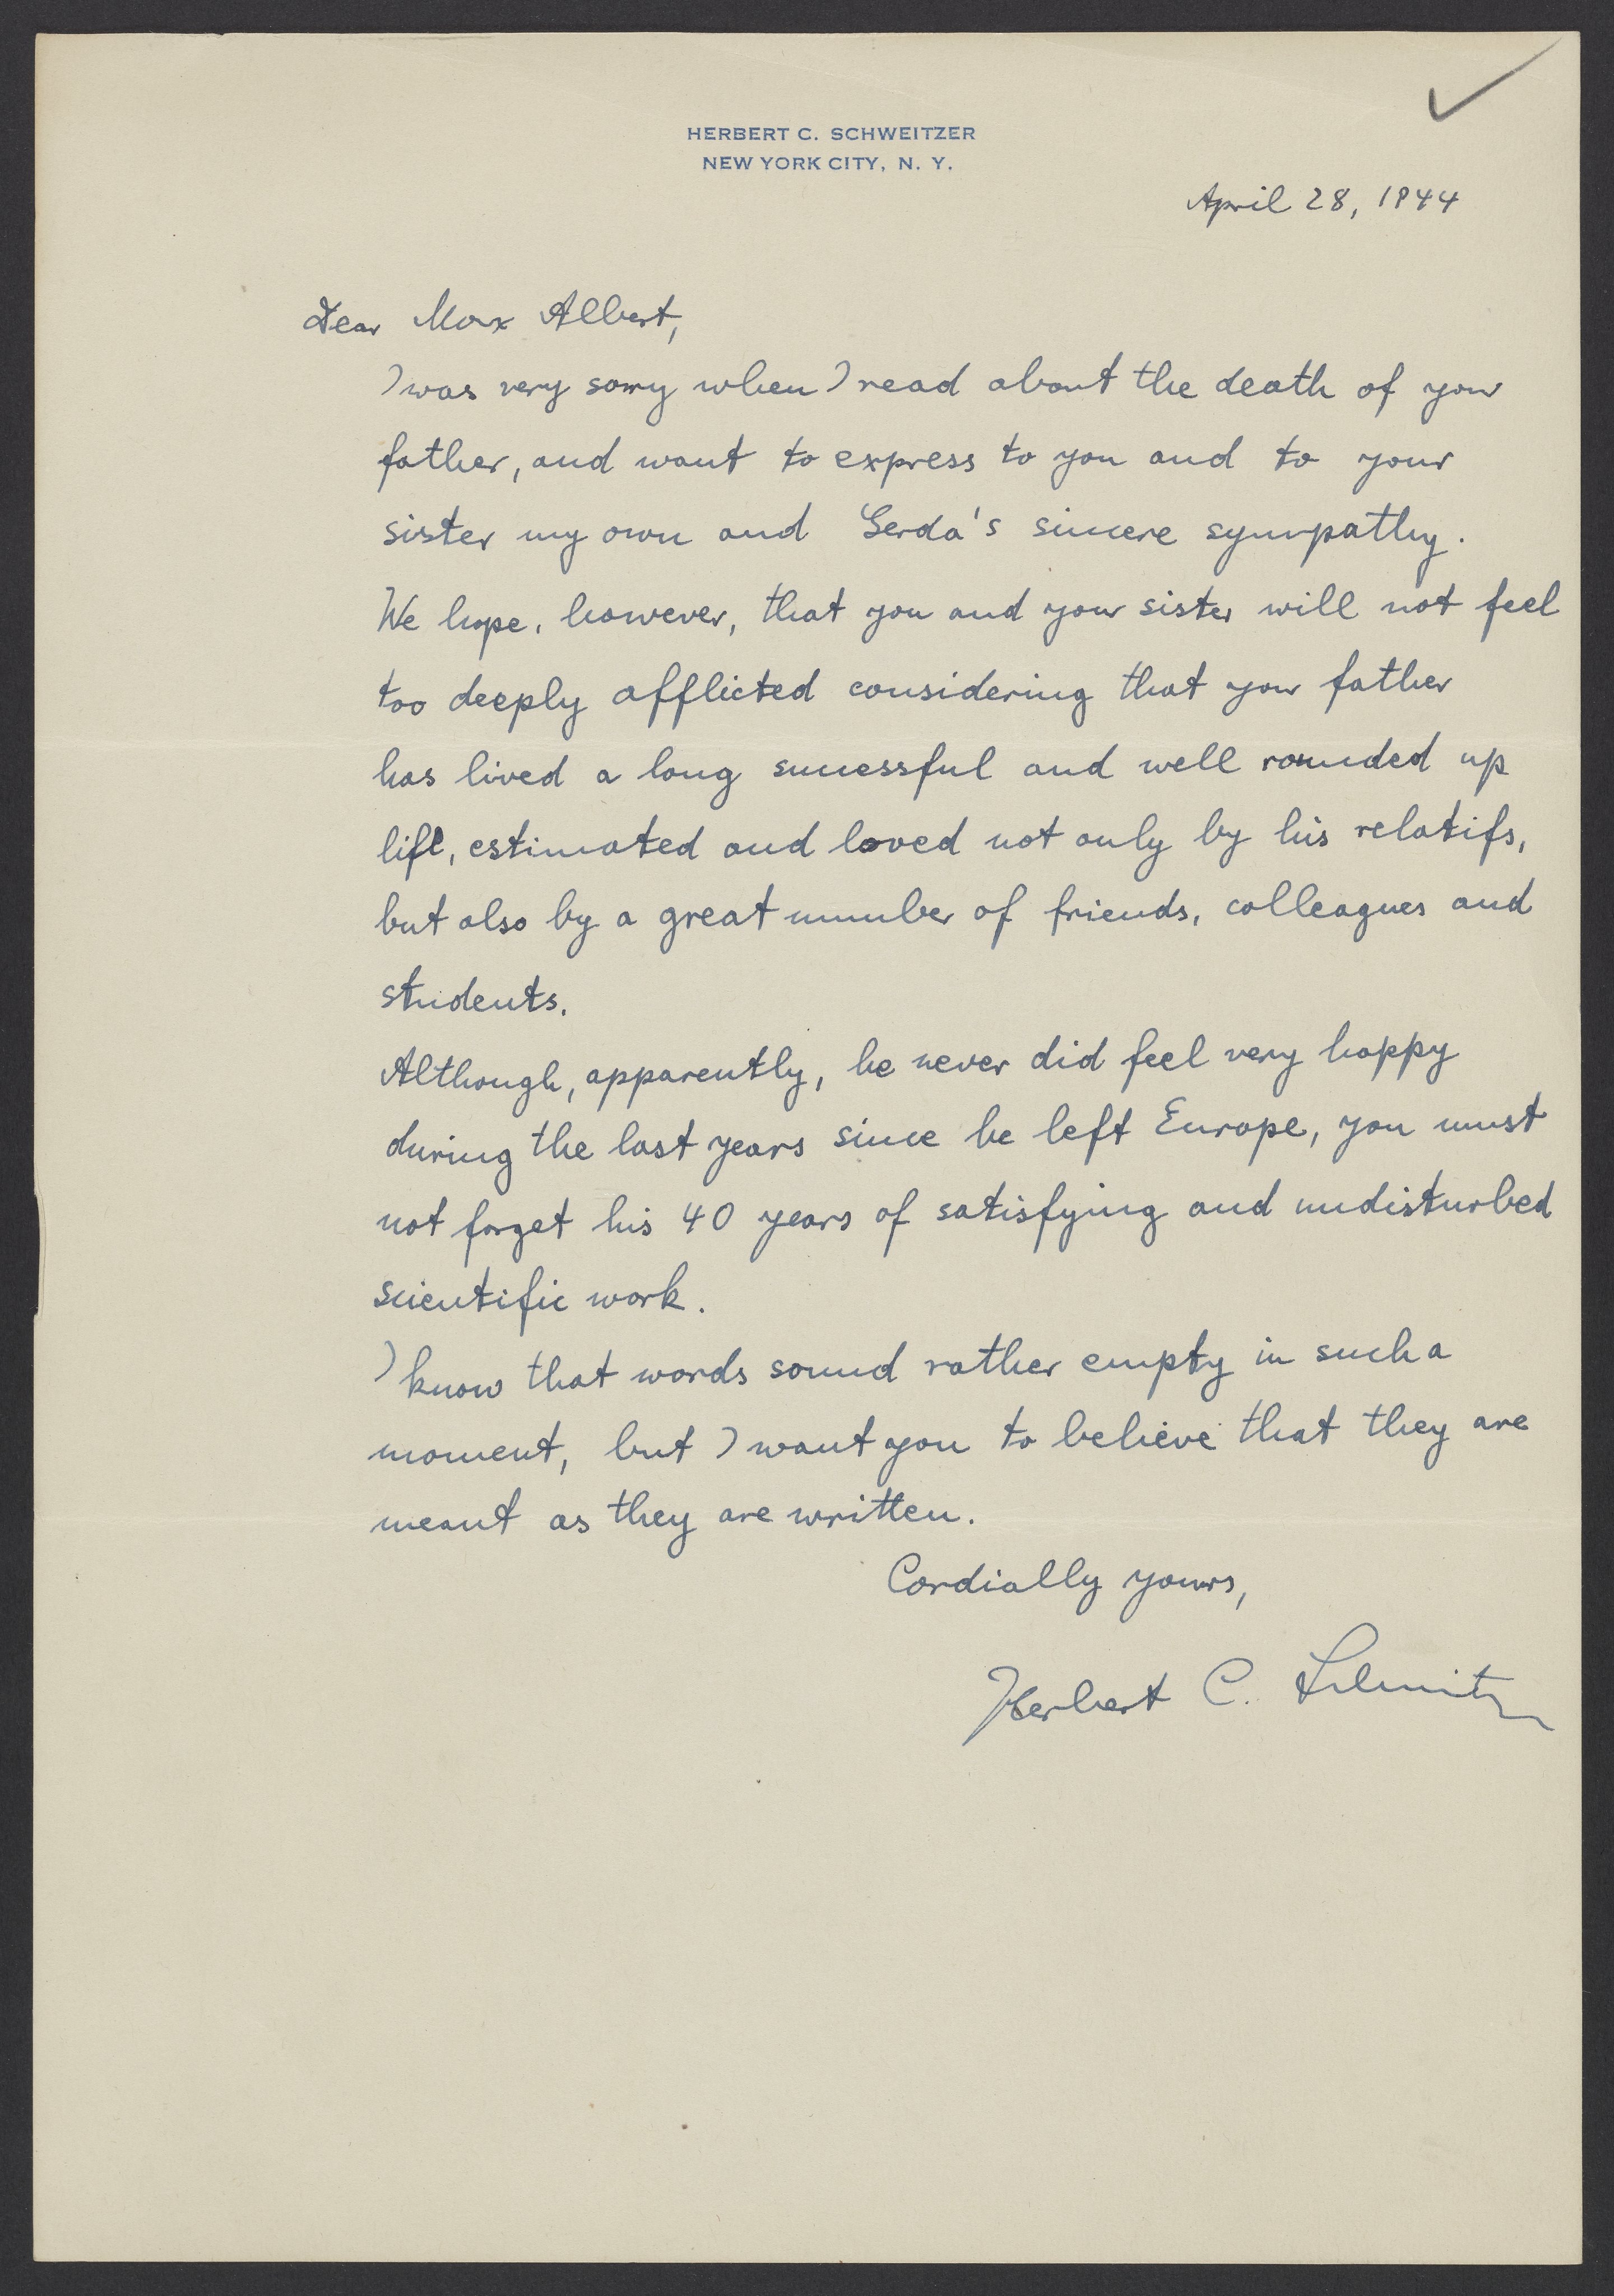 HERBERT C. SCHWEITZER
NEW YORK CITY, N. Y.
April 28, 1944
Dear Max Albert,
I was very sorry when I read about the death of your
father, and want to express to you and to your
sister my own and Gerda's sincere sympathy.
We hope, however, that you and your sister will not feel
too deeply afflicted considering that your father
has lived a long successful and well rounded up
life, estimated and loved not only by his relatifs,
but also by a great number of friends, colleagues and
students.
Although, apparently, he never did feel very happy
during the last years since he left Europe, you must
not forget his 40 years of satisfying and undisturbed
scientific work.
I know that words sound rather empty in such a
moment, but I want you to believe that they are
meant as they are written.
Cordially yours,
Herbert C. Schweitzer